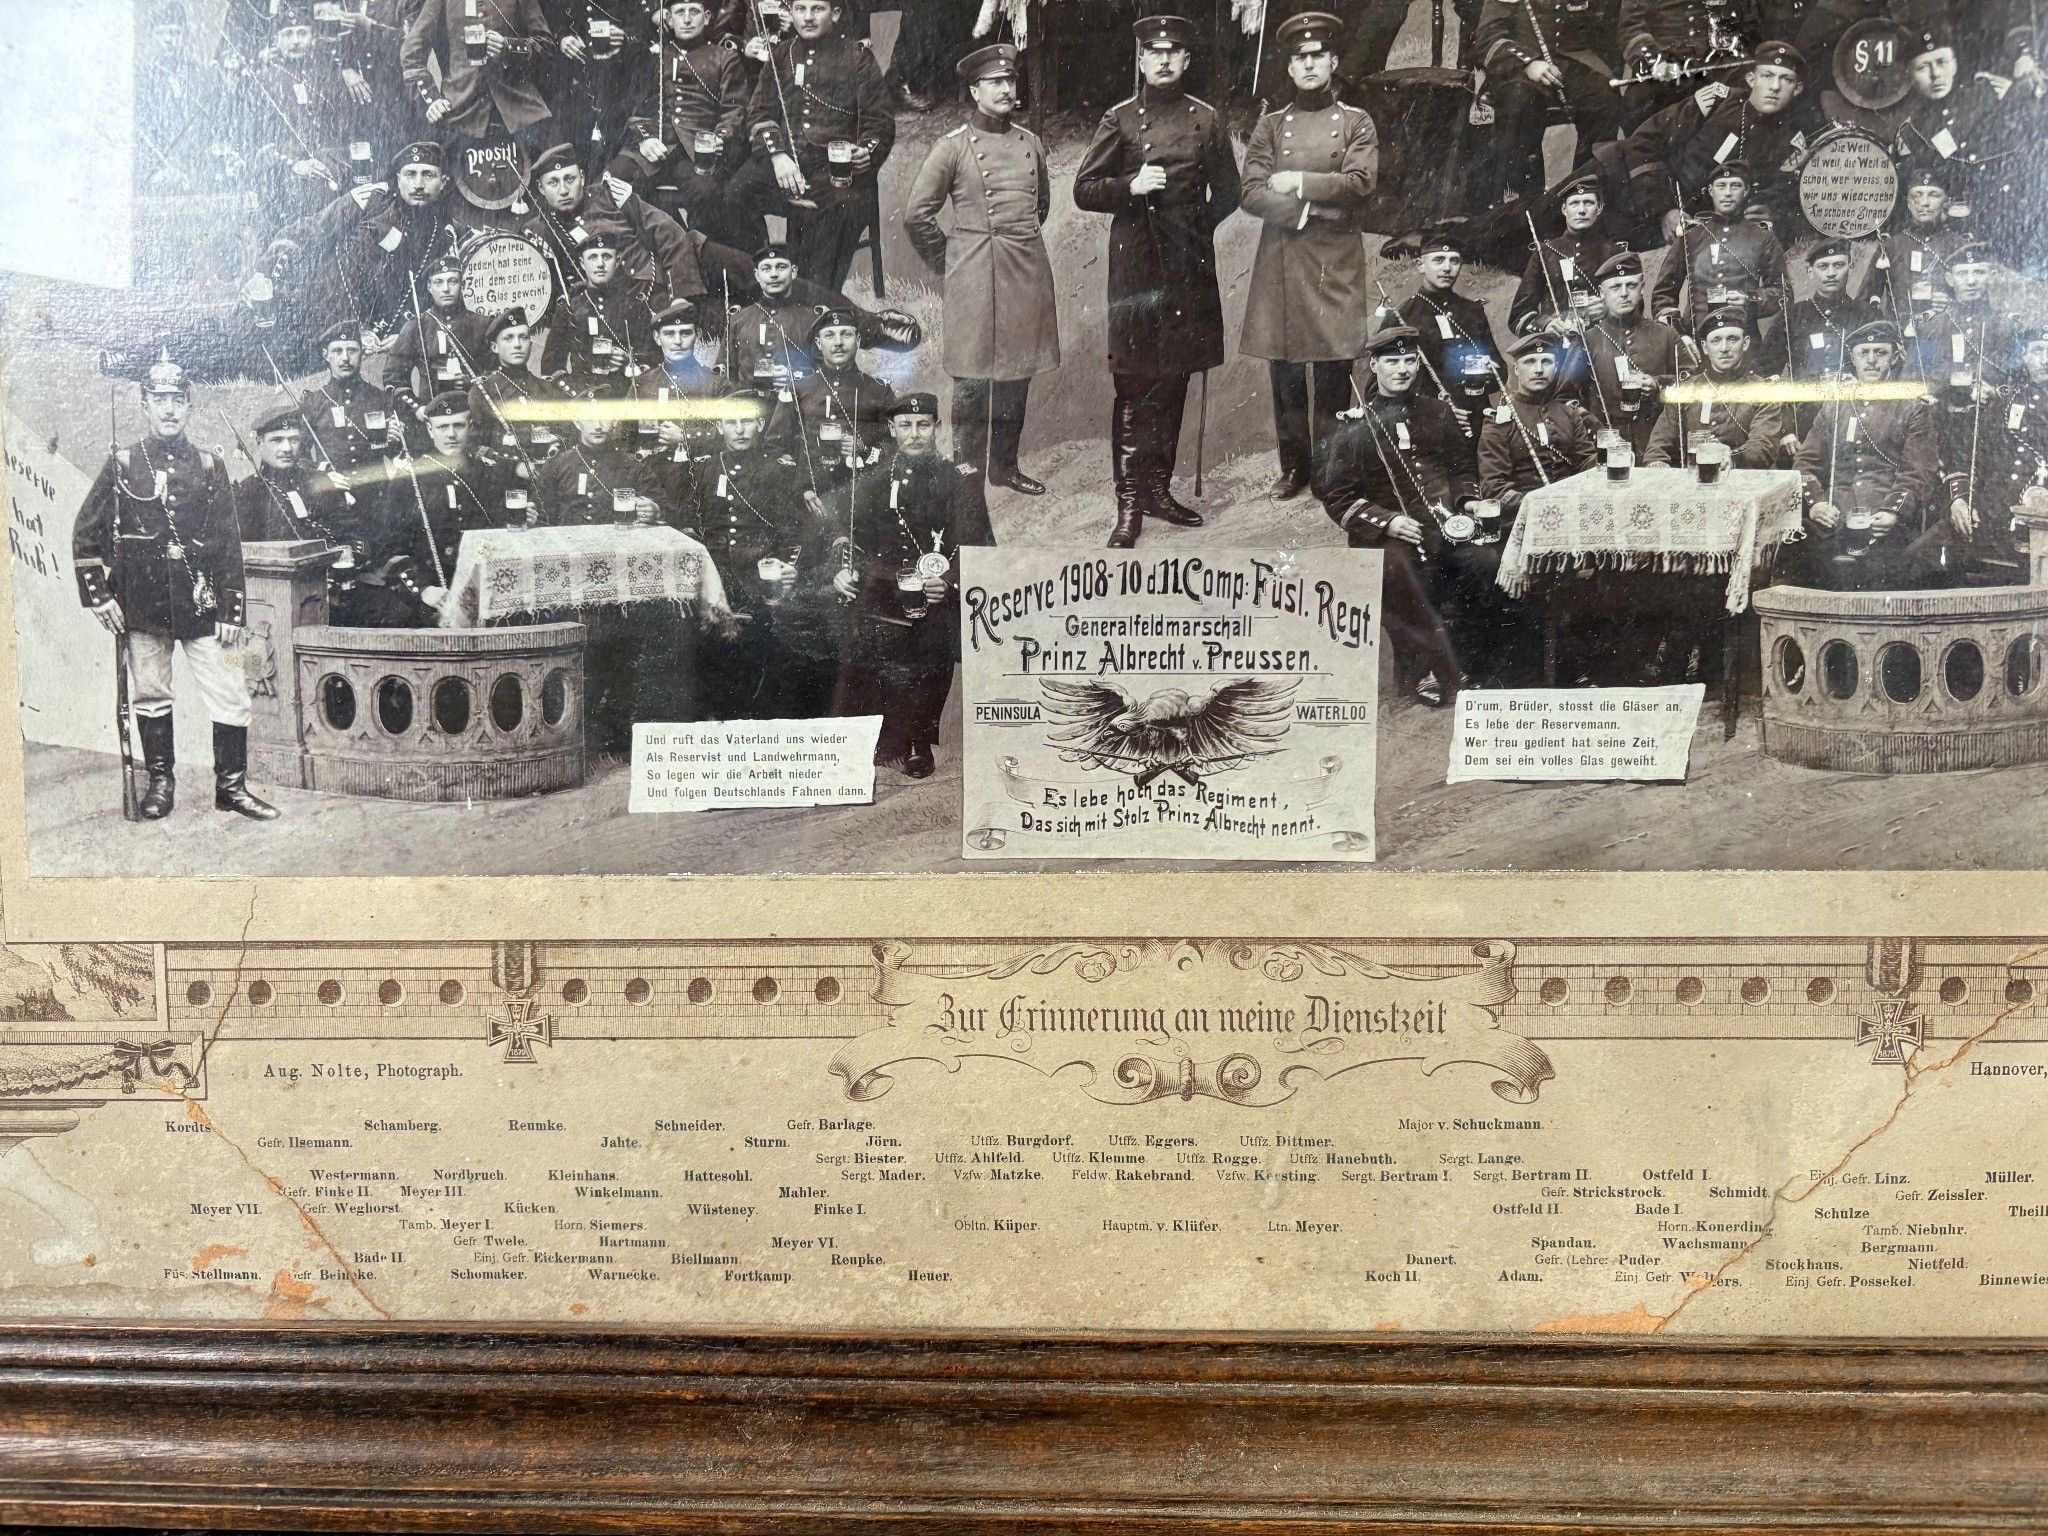 § 11
Prosit!
Die Welt
ist weit, die Welt ist
schön, wer weiss, ob
wir uns wiedersehn
Am schönen Strand
der Leine.
Wer treu
gedient hat seine
Zeit dem sei ein vol
les Glas geweiht.
Reserve
hat
Ruh!
Reserve 1908-10 d. 11. Comp: Füsl. Regt.
Generalfeldmarschall
Prinz Albrecht v. Preussen.
PENINSULA WATERLOO
Es lebe hoch das Regiment,
Das sich mit Stolz Prinz Albrecht nennt.
Und ruft das Vaterland uns wieder
Als Reservist und Landwehrmann,
So legen wir die Arbeit nieder
Und folgen Deutschlands Fahnen dann.
D'rum, Brüder, stosst die Gläser an,
Es lebe der Reservemann.
Wer treu gedient hat seine Zeit,
Dem sei ein volles Glas geweiht.
Zur Erinnerung an meine Dienstzeit
1870 1870
Aug. Nolte, Photograph. Hannover,
Kordts Schamberg. Reumke. Schneider. Gefr. Barlage. Major v. Schuckmann.
Gefr. Ilsemann. Jahte. Sturm. Jörn. Utffz. Burgdorf. Utffz. Eggers. Utffz. Dittmer.
Sergt. Biester. Utffz. Ahlfeld. Utffz. Klemme. Utffz. Rogge. Utffz Hanebuth. Sergt. Lange.
Westermann. Nordbruch. Kleinhans. Hattesohl. Sergt. Mader. Vzfw. Matzke. Feldw. Rakebrand. Vzfw. Kersting. Sergt. Bertram I. Sergt. Bertram II. Ostfeld I. Einj. Gefr. Linz. Müller.
Gefr. Finke II. Meyer III. Winkelmann. Mahler. Gefr. Strickstrock. Schmidt. Gefr. Zeissler.
Meyer VII. Gefr. Weghorst. Kücken. Wüsteney. Finke I. Ostfeld II. Bade I. Schulze Theil
Tamb. Meyer I. Horn. Siemers. Obltn. Küper. Hauptm. v. Klüfer. Ltn. Meyer. Horn. Konerding. Tamb. Niebuhr.
Gefr. Twele. Hartmann. Meyer VI. Spandau. Wachsmann. Bergmann.
Bade II. Einj. Gefr. Eickermann. Biellmann. Reupke. Danert. Gefr. (Lehrer) Puder. Stockhaus. Nietfeld.
Füs. Stellmann. Gefr. Beineke. Schomaker. Warnecke. Fortkamp. Heuer. Koch II. Adam. Einj. Gefr. Wolters. Einj. Gefr. Possekel. Binnewies